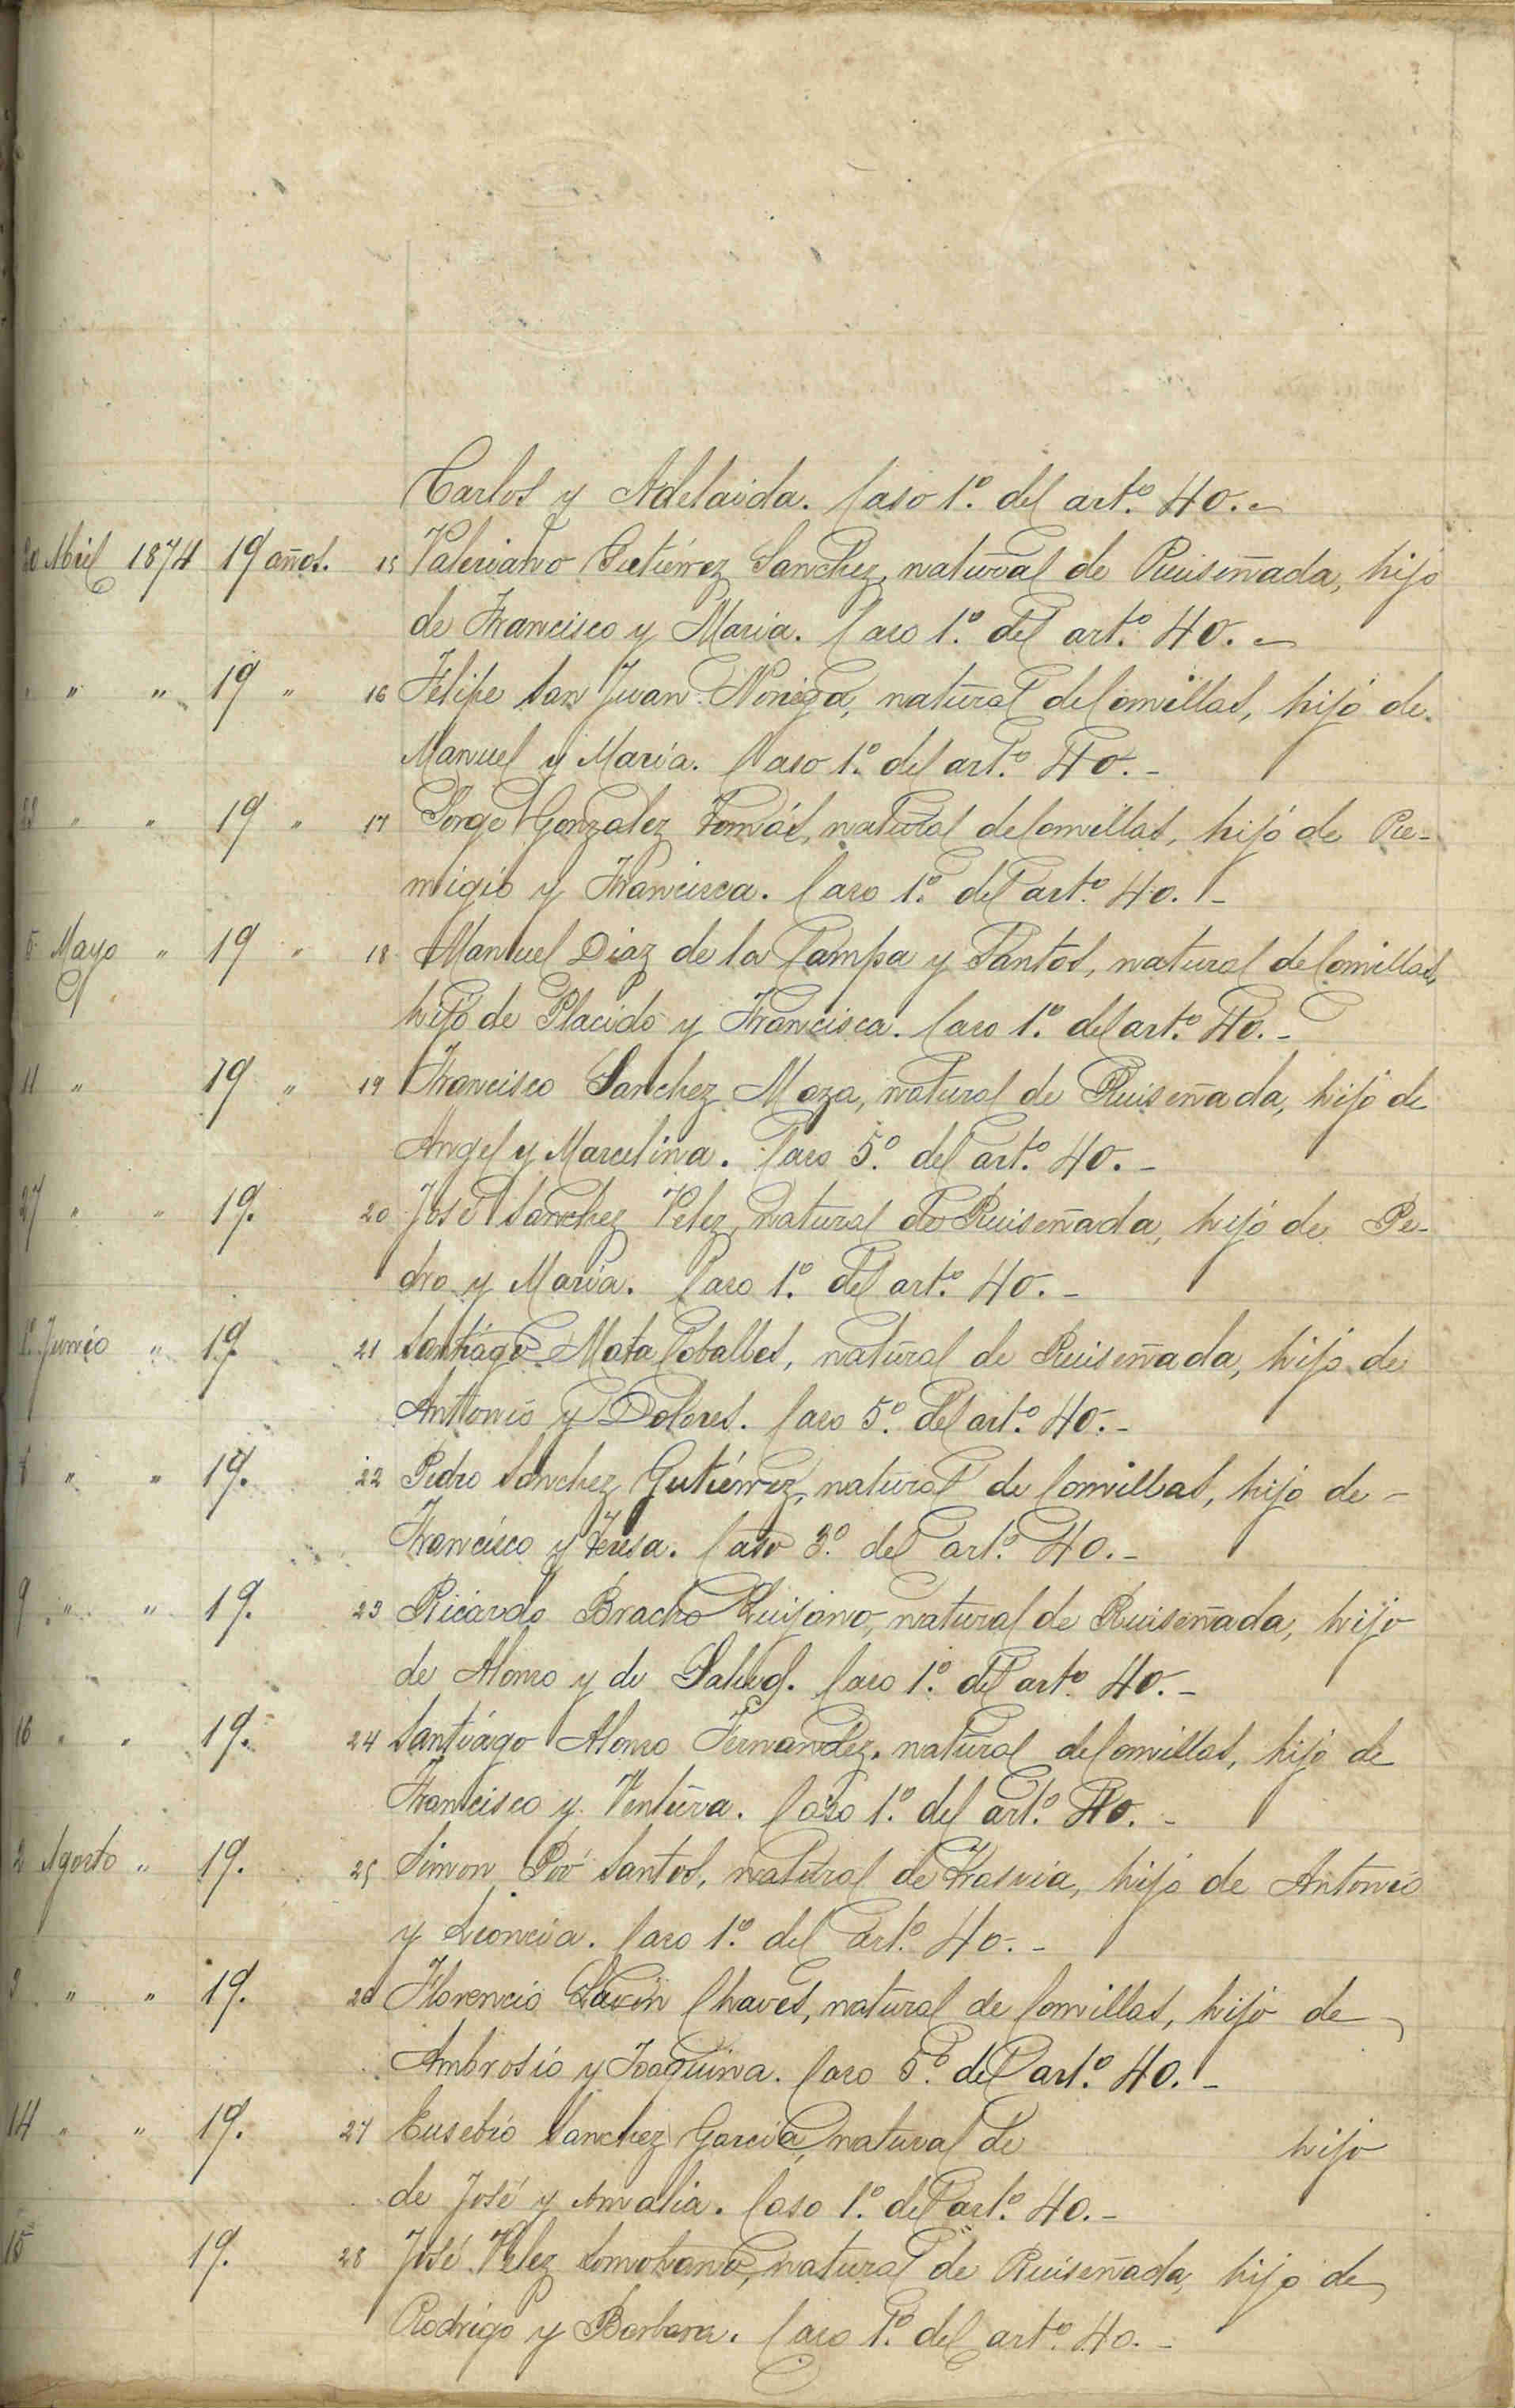 Carlos y Adelaida. Caso 1º. del artº. 40.-
20 Abril 1874 19 años. 15 Valeriano Gutiérrez Sanchez, natural de Ruiseñada, hijo
de Francisco y Maria. Caso 1º. del artº. 40.-
" " " 19 " 16 Felipe San Juan Noriega, natural de Comillas, hijo de
Manuel y María. Caso 1º. del artº. 40.-
" " 19 " 17 Jorge Gonzalez Tomás, natural de Comillas, hijo de Re-
migio y Francisca. Caso 1º. del artº. 40.-
5 Mayo " 19 " 18 Manuel Diaz de la Campa y Santos, natural de Comillas,
hijo de Placido y Francisca. Caso 1º. del artº. 40.-
11 " 19 " 19 Francisco Sanchez Maza, natural de Ruiseñada, hijo de
Angel y Marcelina. Caso 5º. del artº. 40.-
27 " " 19. 20 José Sanchez Velez, natural de Ruiseñada, hijo de Pe-
dro y María. Caso 1º. del artº. 40.-
1º. Junio " 19 21 Santiago Mata Ceballos, natural de Ruiseñada, hijo de
Antonio y Dolores. Caso 5º. del artº. 40.-
" " 19. 22 Pedro Sanchez Gutiérrez, natural de Comillas, hijo de -
Francisco y Teresa. Caso 3º. del artº. 40.-
9 " " 19. 23 Ricardo Bracho Quijano, natural de Ruiseñada, hijo
de Alonso y de Caso 1º. del artº. 40.-
16 " " 19. 24 Santiágo Alonso Fernandez, natural de Comillas, hijo de
Francisco y Ventura. Caso 1º. del artº. 40.-
2 Agosto " 19. 25 Simon Poó Santos, natural de Trasvia, hijo de Antonio
y Leoncia. Caso 1º. del artº. 40.-
3 " " 19. 26 Florencio Lavín Chaves, natural de Comillas, hijo de
Ambrosio y Joaquina. Caso 5º. del artº. 40.-
14 " " 19. 27 Eusebio Sanchez García, natural de hijo
de José y Amalia. Caso 1º. del artº. 40.-
15 19. 28 José Velez natural de Ruiseñada, hijo de
Rodrigo y Barbara. Caso 1º. del artº. 40.-